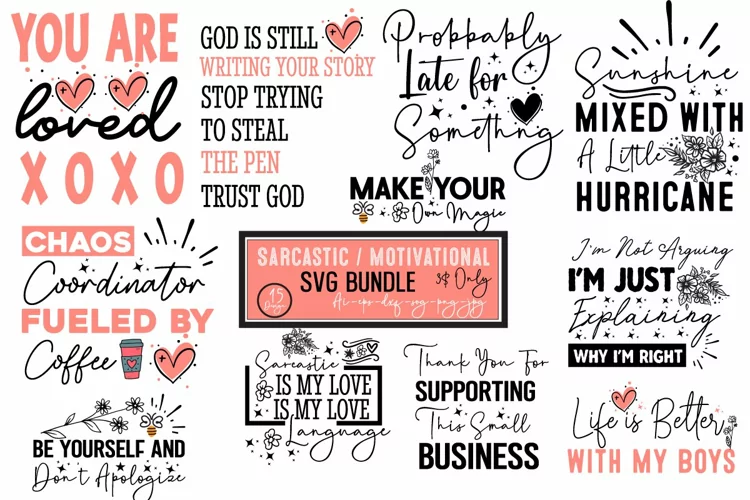 YOU ARE
loved
XOXO
GOD IS STILL
WRITING YOUR STORY
STOP TRYING
TO STEAL
THE PEN
TRUST GOD
Probbably
Late for
Something
Sunshine
MIXED WITH
A Little
HURRICANE
MAKE YOUR
Own Magic
CHAOS
Coordinator
FUELED BY
Coffee
SARCASTIC / MOTIVATIONAL
SVG BUNDLE
3$ Only
15
Designs
Ai-eps-dxf-svg-png-jpg
I'm Not Arguing
I'M JUST
Explaining
WHY I'M RIGHT
Sarcastic
IS MY LOVE
IS MY LOVE
Language
Thank You For
SUPPORTING
This Small
BUSINESS
BE YOURSELF AND
Don't Apologize
Life is Better
WITH MY BOYS